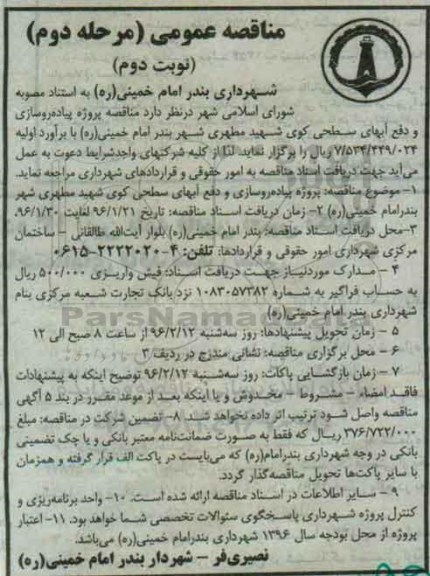 مناقصه عمومی (مرحله دوم)
(نوبت دوم)
شهرداری بندر امام خمینی(ره) به استناد مصوبه
شورای اسلامی شهر درنظر دارد مناقصه پروژه پیاده‌روسازی
و دفع آبهای سطحی کوی شهید مطهری شهر بندر امام خمینی(ره) با برآورد اولیه
۷/۵۳۴/۴۴۹/۰۲۴ ریال را برگزار نماید. لذا از کلیه شرکتهای واجدشرایط دعوت به عمل
می‌آید جهت دریافت اسناد مناقصه به امور حقوقی و قراردادهای شهرداری مراجعه نماید.
۱- موضوع مناقصه: پروژه پیاده‌روسازی و دفع آبهای سطحی کوی شهید مطهری شهر
بندرامام خمینی(ره) ۲- زمان دریافت اسناد مناقصه: تاریخ ۹۶/۱/۲۱ لغایت ۹۶/۱/۳۰.
۳-محل دریافت اسناد مناقصه: بندر امام خمینی(ره) بلوار آیت‌الله طالقانی – ساختمان
مرکزی شهرداری امور حقوقی و قراردادها: تلفن: ۴-۲۲۲۲۰۲۰-۰۶۱۵
۴ – مدارک موردنیاز جهت دریافت اسناد: فیش واریزی ۵۰۰/۰۰۰ ریال
به حساب فراگیر به شماره ۱۰۸۳۰۵۷۳۸۲ نزد بانک تجارت شعبه مرکزی بنام
شهرداری بندر امام خمینی(ره)
۵ – زمان تحویل پیشنهادها: روز سه‌شنبه ۹۶/۲/۱۲ از ساعت ۸ صبح الی ۱۲
۶ – محل برگزاری مناقصه: نشانی مندرج در ردیف ۳
۷ – زمان بازگشایی پاکات: روز سه‌شنبه ۹۶/۲/۱۲ توضیح اینکه به پیشنهادات
فاقد امضاء – مشروط – مخدوش و یا اینکه بعد از موعد مقرر در بند ۵ آگهی
مناقصه واصل شود ترتیب اثر داده نخواهد شد. ۸- تضمین شرکت در مناقصه: مبلغ
۳۷۶/۷۲۲/۰۰۰ ریال که فقط به صورت ضمانت‌نامه معتبر بانکی و یا چک تضمینی
بانکی در وجه شهرداری بندرامام(ره) که می‌بایست در پاکت الف قرار گرفته و همزمان
با سایر پاکت‌ها تحویل مناقصه‌گذار گردد.
۹ – سایر اطلاعات در اسناد مناقصه ارائه شده است. ۱۰- واحد برنامه‌ریزی و
کنترل پروژه شهرداری پاسخگوی سئوالات تخصصی شما خواهد بود. ۱۱- اعتبار
پروژه از محل بودجه سال ۱۳۹۶ شهرداری بندرامام خمینی(ره) می‌باشد.
نصیری‌فر – شهردار بندر امام خمینی(ره)
ParsNamadData